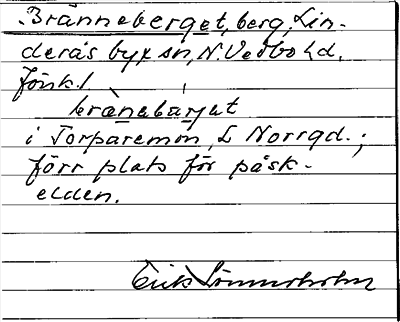 Bränneberget, berg, Lin-
derås by x sn, N. Vedbo hd,
Jönk. l
brànebárjut
i Torparemon, L Norrgd.;
förr plats för påsk-
elden.
Erik Lönnerholm